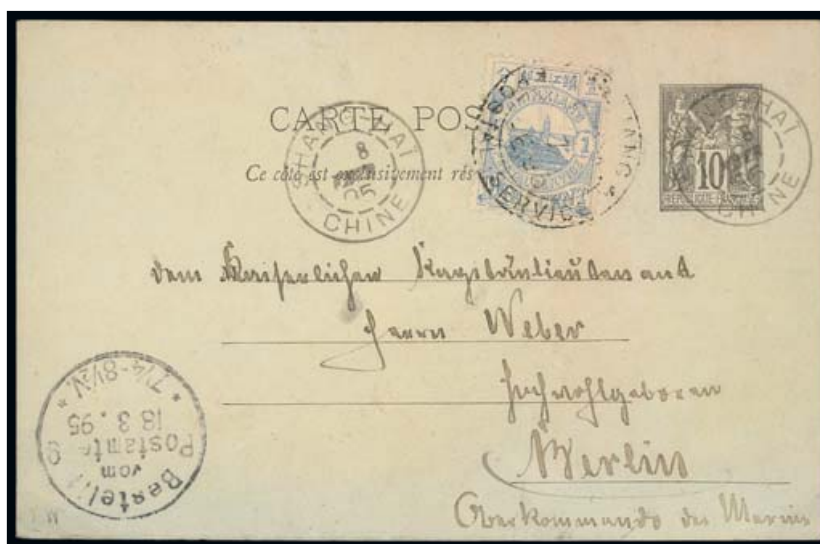 CARTE POS
Ce côté est exclusivement rés
SHANG-HAI
8
95
CHINE
SERVICE
1
10
REPUBLIQUE FRANCAISE
SHANG-HAI
8
CHINE
dem Kaiserlichen Kapitänlieutenant
Herrn Weber
Hochwohlgeboren
Berlin
Oberkommando der Marine
Bestellt
vom
Postamte 9
18 3. 95
* 7¼-8½N. *